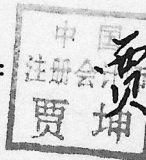 中国
注册会计师
贾坤
贾